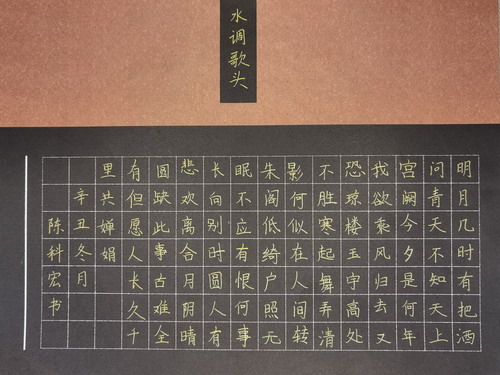 水调歌头
明月几时有把酒
问青天不知天上
宫阙今夕是何年
我欲乘风归去又
恐琼楼玉宇高处
不胜寒起舞弄清
影何似在人间转
朱阁低绮户照无
眠不应有恨何事
长向别时圆人有
悲欢离合月阴晴
圆缺此事古难全
有但愿人长久千
里共婵娟
辛丑冬月
陈科宏书